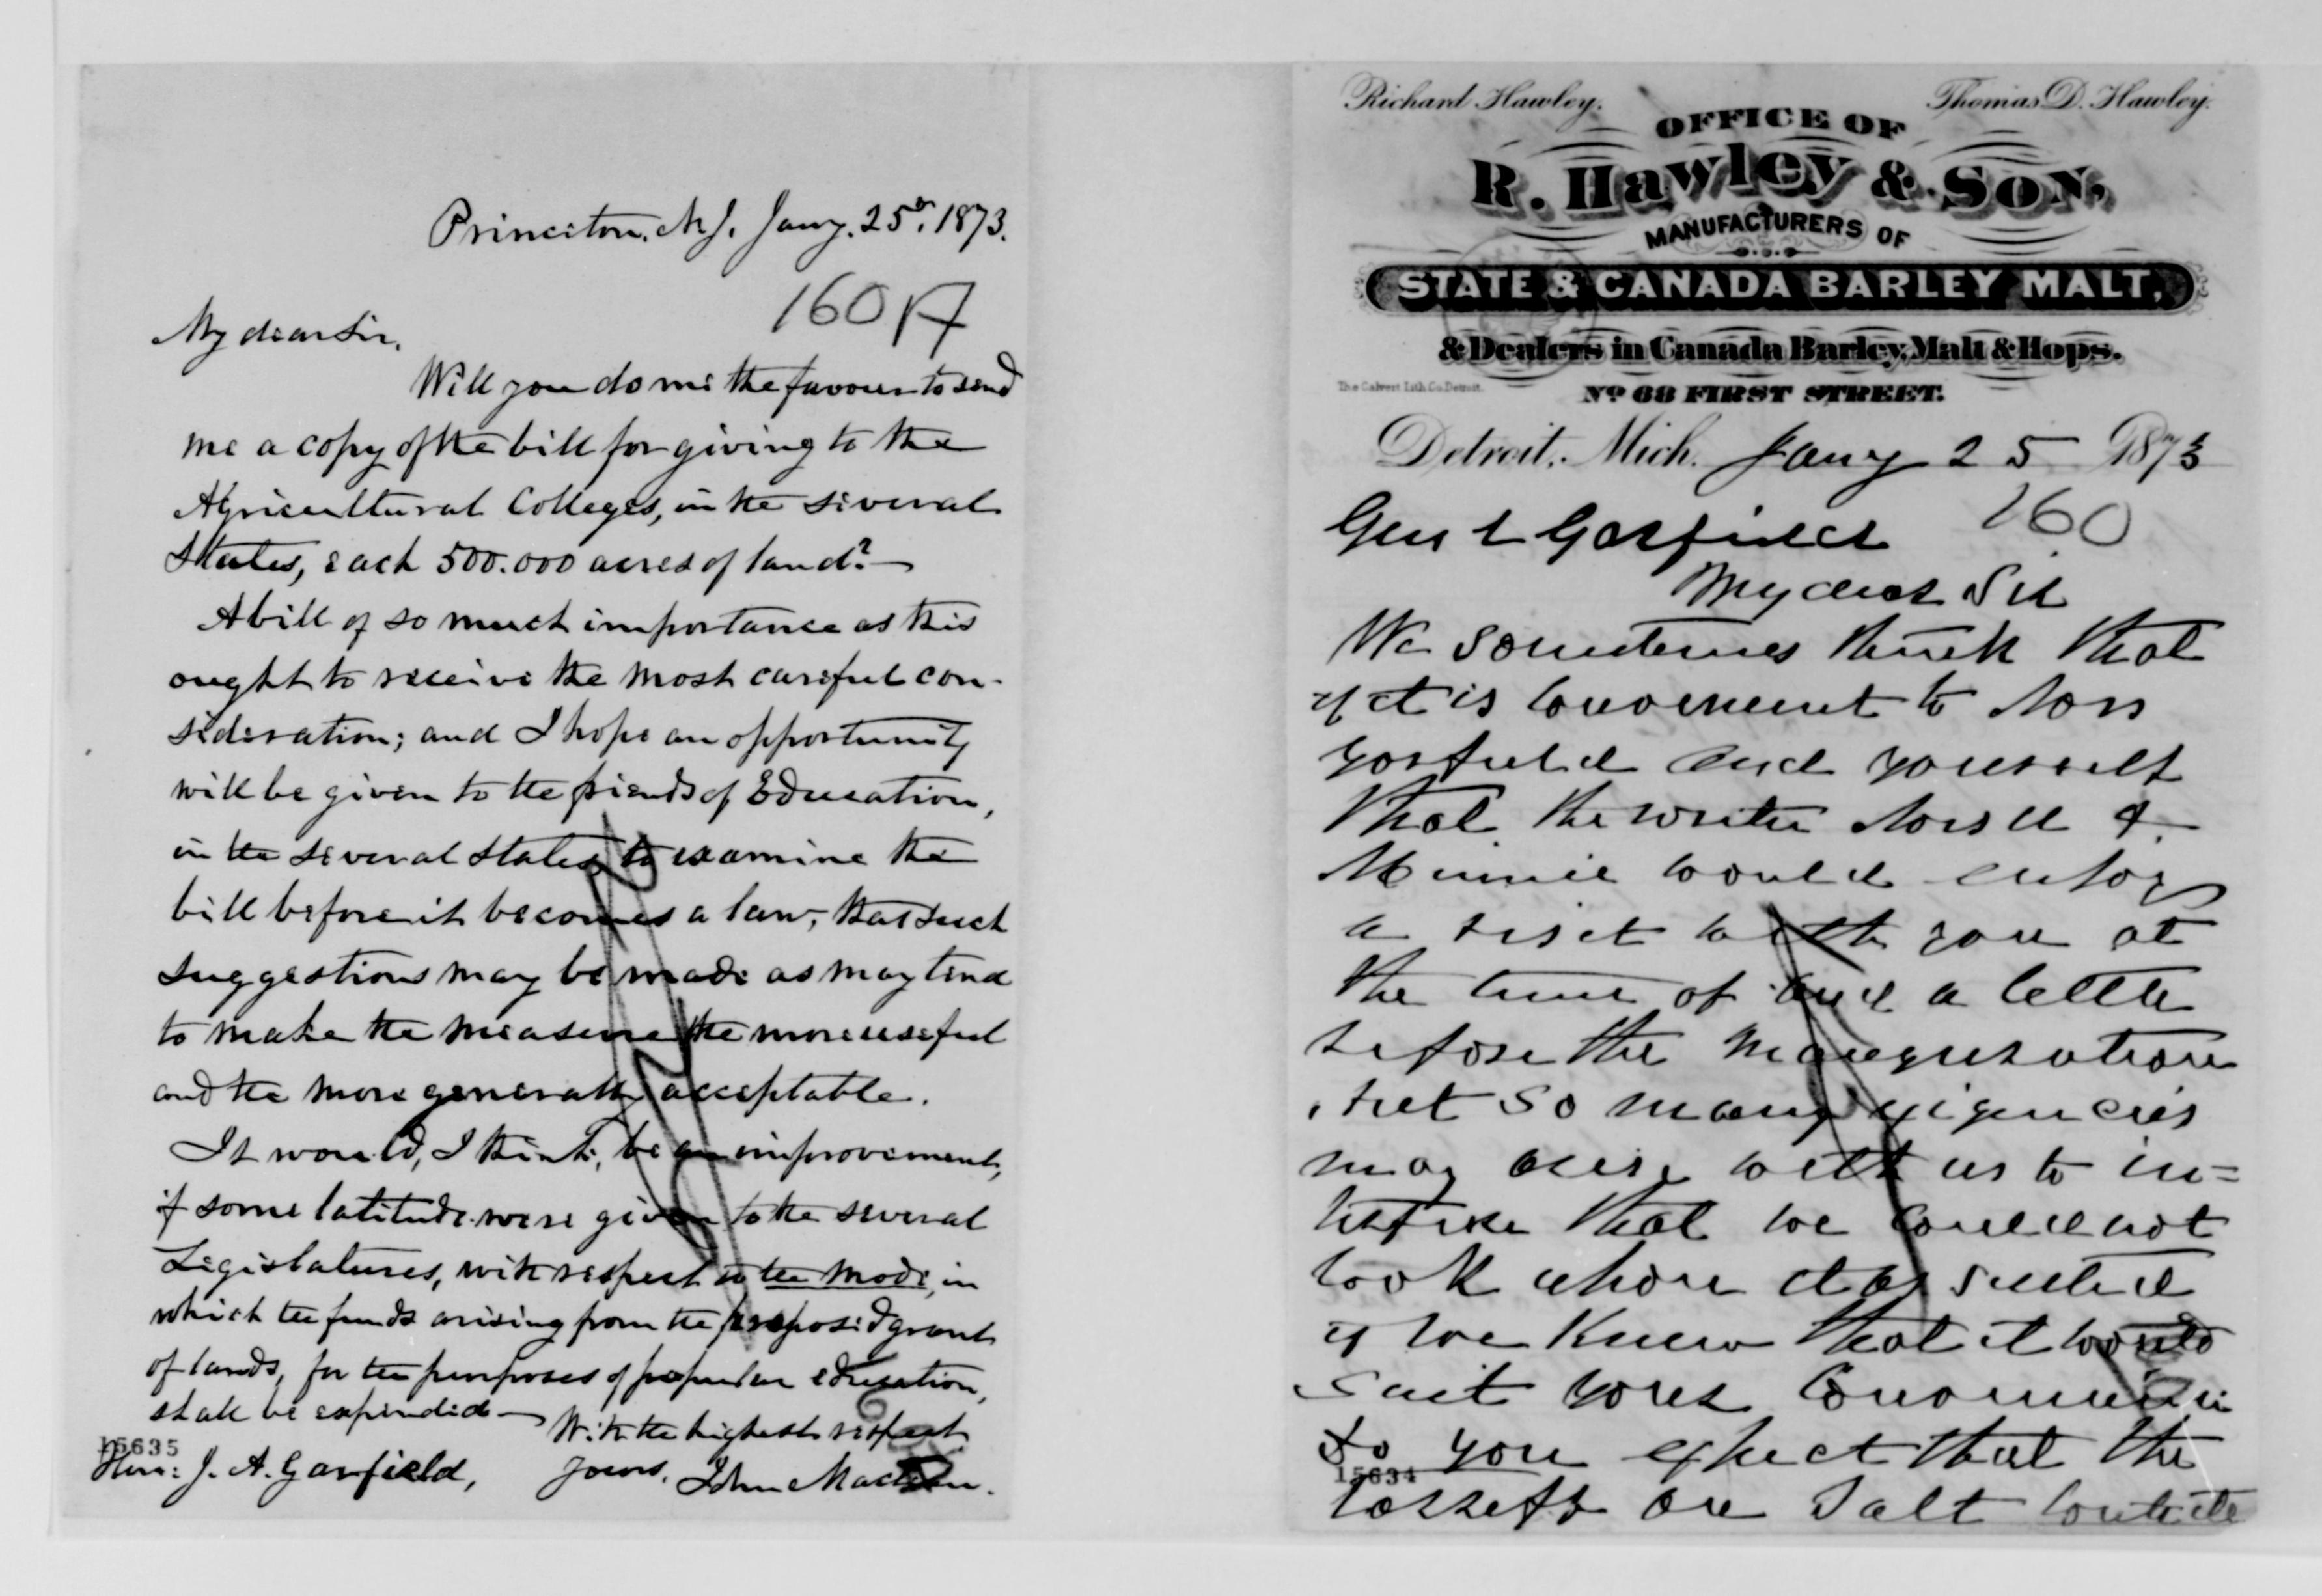 Princeton, N.J. Jany. 25th, 1873.
160 A
My dear Sir,
Will you do me the favour to send
me a copy of the bill for giving to the
Agricultural Colleges, in the several
States, each 500.000 acres of land?—
A bill of so much importance as this
ought to receive the most careful con-
sideration; and I hope an opportunity
will be given to the friends of Education,
in the several States to examine the
bill before it becomes a law, that such
suggestions may be made as may tend
to make the measure the more useful
and the more generally acceptable.
It would, I think, be an improvement,
if some latitude were given to the several
Legislatures, with respect to the mode, in
which the funds arising from the proposed grant
of lands, for the purposes of popular education,
shall be expended— With the highest respect
15635
Hon: J. A. Garfield, Yours, John Maclean.
Richard Hawley. Thomas D. Hawley.
OFFICE OF
R. Hawley & Son,
MANUFACTURERS OF
STATE & CANADA BARLEY MALT,
& Dealers in Canada Barley, Malt & Hops.
The Calvert Lith. Co. Detroit.
No 68 FIRST STREET.
Detroit, Mich. Jany 25 1873
Genl Garfield 160
My dear Sir
We sometimes think that
if it is convenient to Mrs
Garfield and yourself
that the writer &
Minnie would enjoy
a visit with you at
the time of and a little
before the Inauguration
, but so many exigencies
may arise with us to in=
terfere that we could not
look upon it as settled
if we knew that it would
suit your convenience
Do you expect that the
15634
tariff on Salt